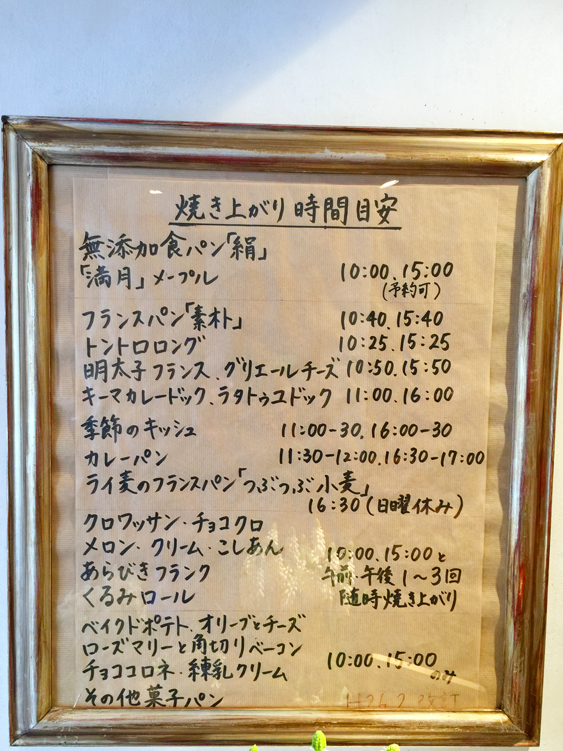 焼き上がり時間目安
無添加食パン「絹」
「満月」メープル 10:00、15:00
(予約可)
フランスパン「素朴」 10:40、15:40
トントロロング 10:25、15:25
明太子フランス、グリエールチーズ 10:50、15:50
キーマカレードック、ラタトゥユドック 11:00、16:00
季節のキッシュ 11:00-30、16:00-30
カレーパン 11:30-12:00、16:30-17:00
ライ麦のフランスパン「つぶつぶ小麦」
16:30(日曜休み)
クロワッサン・チョコクロ
メロン・クリーム・こしあん 10:00、15:00と
あらびきフランク 午前・午後1〜3回
くるみロール 随時焼き上がり
ベイクドポテト、オリーブとチーズ
ローズマリーと角切りベーコン
チョココロネ・練乳クリーム 10:00、15:00のみ
その他菓子パン H26.2 改訂